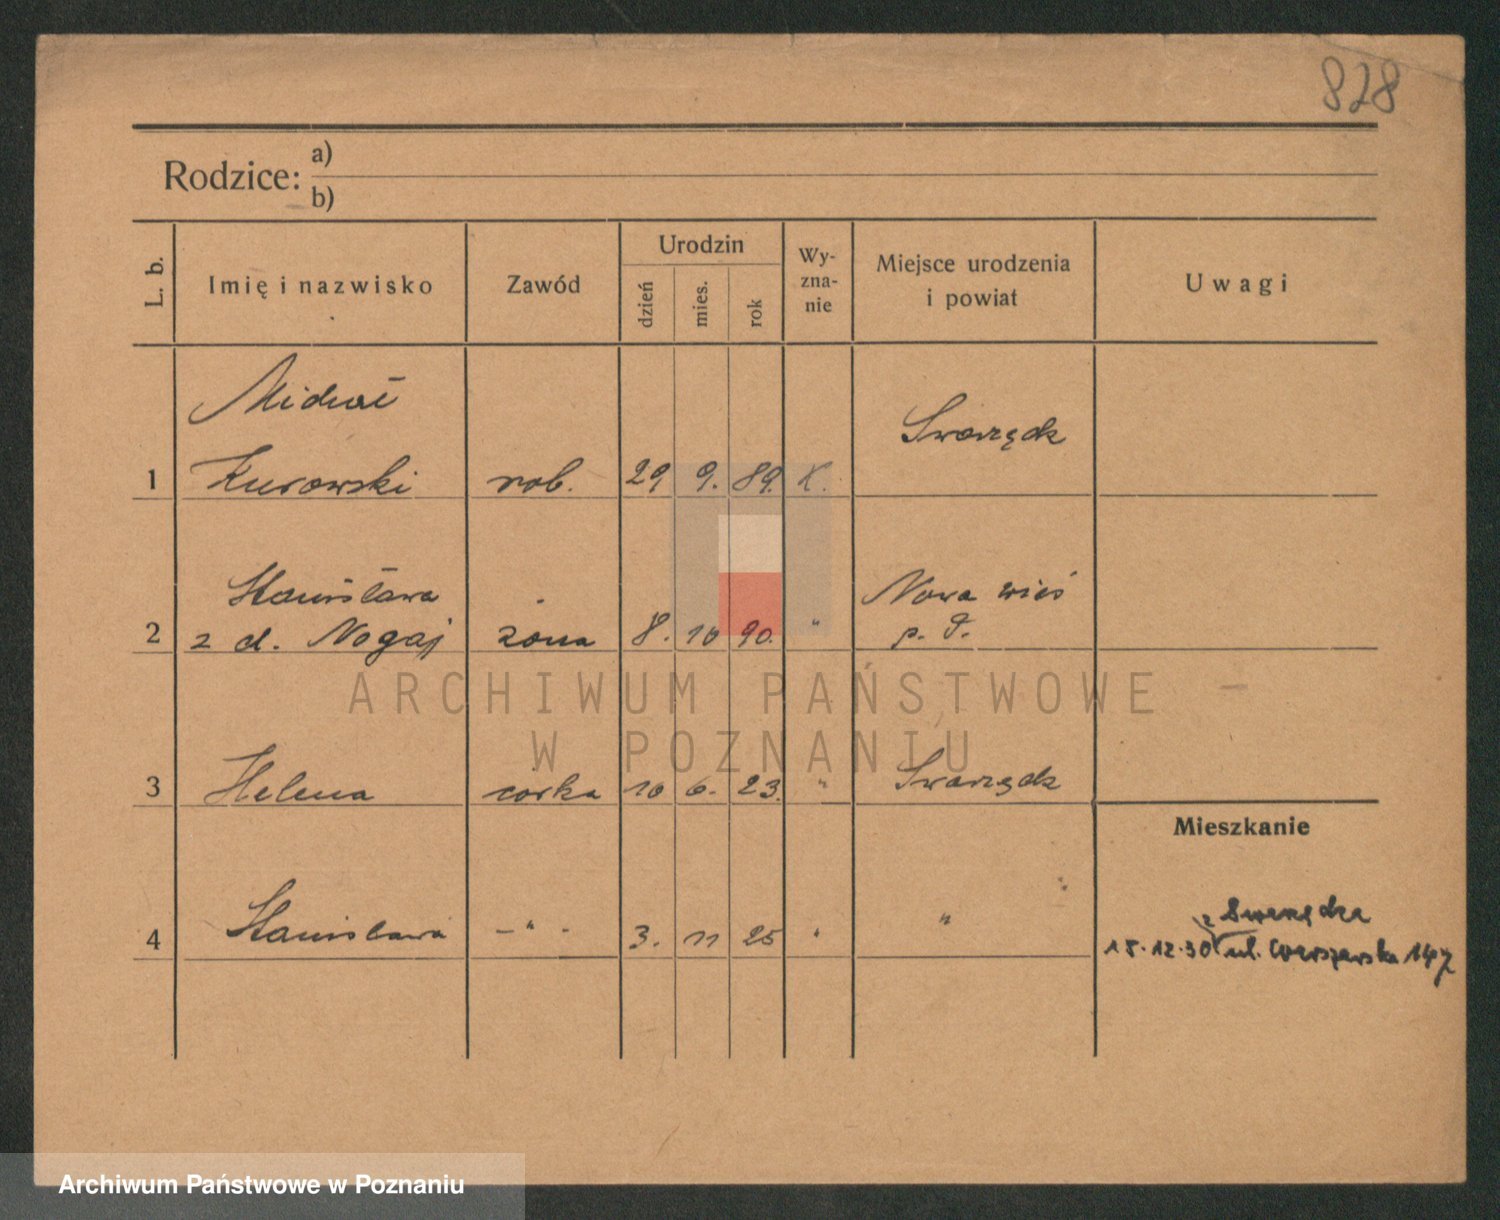 828
Rodzice:
a)
b)
L. b.
Imię i nazwisko
Zawód
Urodzin
dzień
mies.
rok
Wy-
zna-
nie
Miejsce urodzenia
i powiat
Uwagi
Michał
Swarzędz
1 Kurowski rob. 29 9. 89. K.
Stanisława Nowa wieś
2 z d. Nogaj żona 8. 10 90. " p.
3 Helena córka 10 6. 23. " Swarzędz
Mieszkanie
4 Stanisława -"- 3. 11 25 " "
z Swarzędza
15.12.30 ul. Warszawska 14
ARCHIWUM PAŃSTWOWE
W POZNANIU
Archiwum Państwowe w Poznaniu